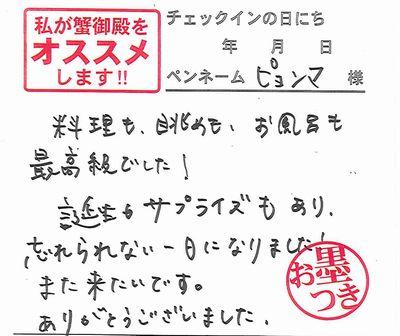 私が蟹御殿を
オススメ
します!!
チェックインの日にち
年 月 日
ペンネーム ピョンマ 様
料理も、眺めも、お風呂も
最高級でした!
誕生日サプライズもあり、
忘れられない一日になりました!
また来たいです。
ありがとうございました.
お墨つき